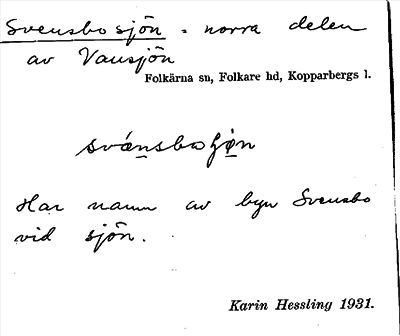 Svensbosjön = norra delen
av Vansjön
Folkärna sn, Folkare hd, Kopparbergs l.
svánsboʃǿn
Har namn av byn Svensbo
vid sjön.
Karin Hessling 1931.